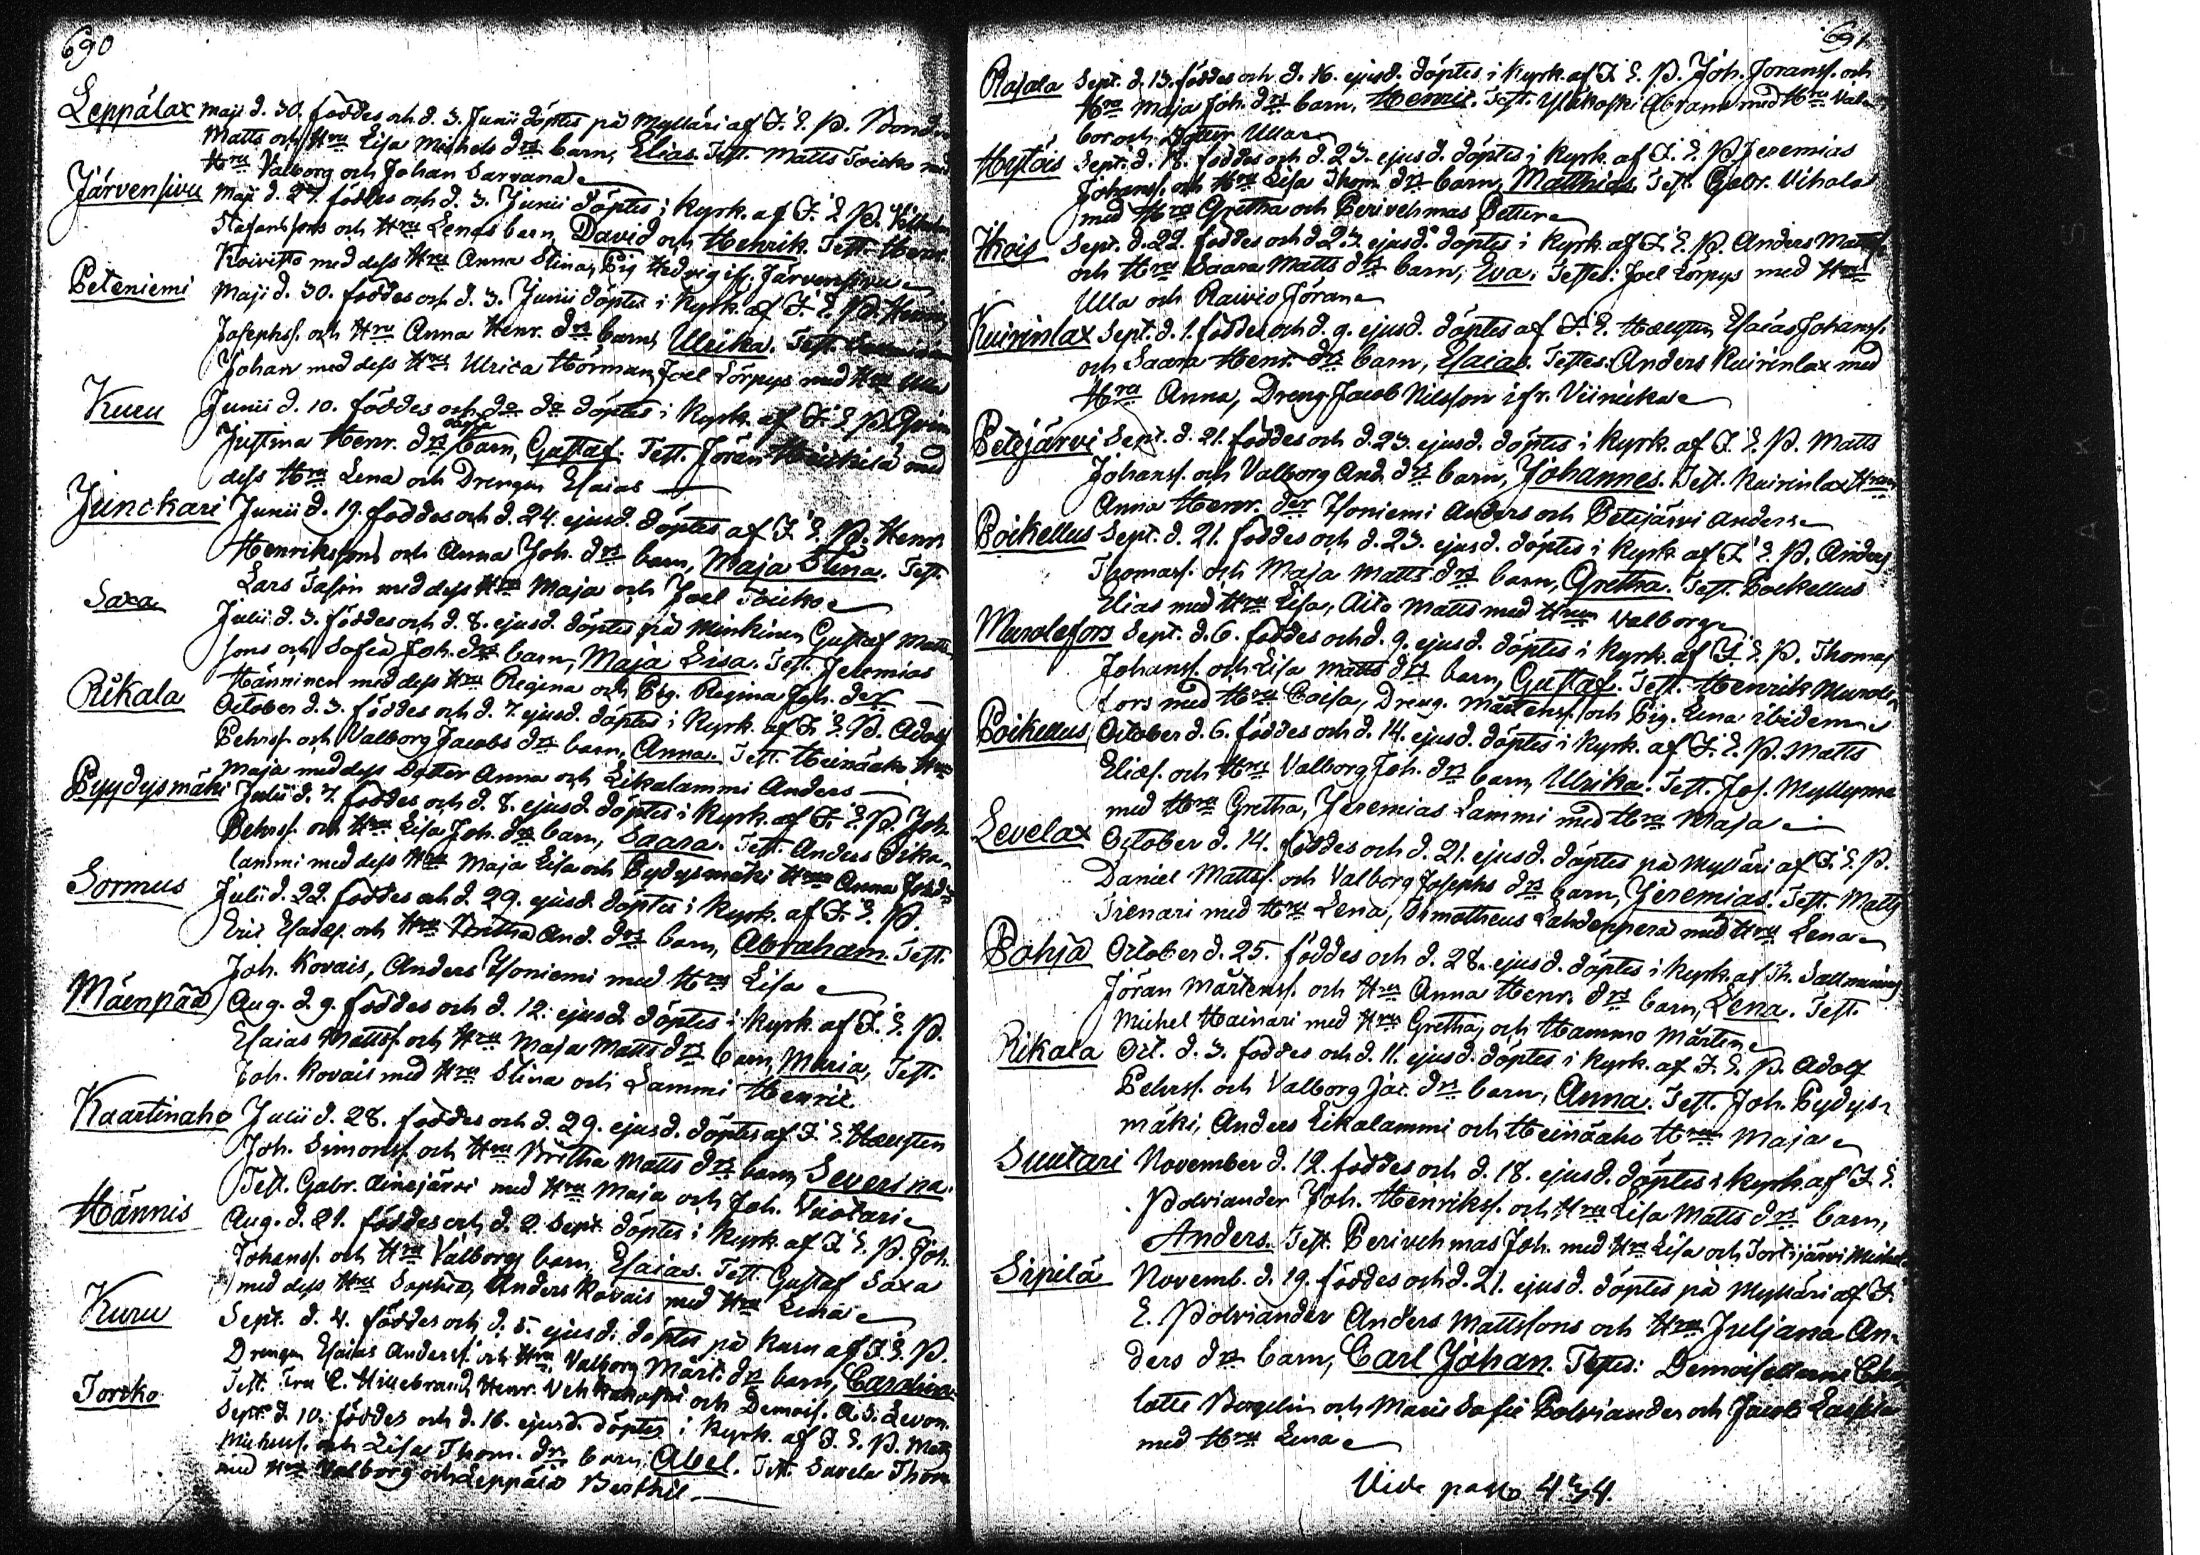 690
Leppälax Maji d. 30. föddes och d. 3. Junii döptes på Mylläri af J. E. P. Bonden
Matts och Hru Lisa Michels drs barn, Elias. Test. Matts Toisko med
Hru Valborg och Johan Sarvana
Järvensivu Maji d. 27. föddes och d. 3. Junii döptes i Kyrk. af J. E. P.
Stafanssons och Hru Lenas barn David och Henrik. Test. Henr.
Koivisto med dess Hru Anna Stina, Pig Hedvig ifr. Järvensivu
Peteniemi Maji d. 30. föddes och d. 3. Junii döptes i Kyrk. af J. E. P. Henric
Josephss. och Hru Anna Henr. drs barn Ulrika. Test.
Johan med dess Hru Ulrica Hörman, Joel Törpys med Hru Ulla
Kuru Junii d. 10. föddes och do do döptes i Kyrk. af J. E. P.
Justina Henr. drs barn, Gustaf. Test. Jöran Heickilä med
dess Hru Lena och Drengen Esaias
Junckari Junii d. 19. föddes och d. 24. ejusd. döptes af J. E. P. Henr.
Henrikssons och Anna Joh. drs barn, Maja Stina. Test.
Lars Tasin med dess Hru Maja och Joel Toicko
Saxa Julii d. 3. föddes och d. 8. ejusd. döptes på Minkinen Gustaf Matts
sons och Sofia Joh. drs barn, Maja Lisa. Test. Jeremias
Hänninen med dess Hru Regina och Pig. Regina Joh. der
Rikala October d. 3. föddes och d. 7. ejusd. döptes i Kyrk. af J. E. P. Adolf
Pehrss. och Valborg Jacobs drs barn, Anna. Test. Heinäaho Hru
Maja med dess Dotter Anna och Likalammi Anders
Pyydysmäki Julii d. 7. föddes och d. 8. ejusd. döptes i Kyrk. af J. E. P. Joh.
Pehrss. och Hru Lisa Joh. drs barn, Saara. Test. Anders Sika
lammi med dess Hru Maja Lisa och Pydysmäki Hru Anna Joh. dr
Sormus Julii d. 22. föddes och d. 29. ejusd. döptes i Kyrk. af J. E. P.
Eric Esaiæs. och Hru Britha And. drs barn, Abraham. Test.
Joh. Kovais, Anders Isoniemi med Hru Lisa
Mäenpää Aug. d. 9. föddes och d. 12. ejusd. döptes i Kyrk. af J. E. P.
Esaias Mattss. och Hru Maja Matts drs barn, Maria, Test.
Joh. Kovais med Hru Stina och Lammi Henric.
Kaartinaho Julii d. 28. föddes och d. 29. ejusd. döptes af J. E. Hæggsten
Joh. Simonss. och Hru Britha Matts drs barn Severina.
Test. Gabr. Ainejärvi med Hru Maja och Joh. Viotari
Hännis Aug. d. 21. föddes och d. 2. Sept. döptes i Kyrk. af J. E. P. Joh.
Johanss. och Hru Valborgs barn, Esaias. Test. Gustaf Saxa
med dess Hru Sophia, Anders Kovais med Hru Lena
Kuru Sept. d. 4. föddes och d. 5. ejusd. döptes på Kuru af J. E. P.
Drengen Esaias Anderss. och Hru Valborg Märt. drs barn, Carolina
Test. Fru C. Hillebrand, Henr. Vehkakoski och Demois. A. S. Levon.
Toicko Sept. d. 10. föddes och d. 16. ejusd. döptes i Kyrk. af J. E. P. Matts
Michelss. och Lisa Thom. drs barn Abel. Test. Savela Thom
med Hru Valborg och Leppälä Berthil
691.
Rajala Sept. d. 13. föddes och d. 16. ejusd. döptes i Kyrk. af J. E. P. Joh. Joranss. och
Hru Maja Joh. drs barn, Henric. Test. Yläkoski Abram med Hru Val
bor och Dotter Ulla
Hytöis Sept. d. 18. föddes och d. 23. ejusd. döptes i Kyrk. af J. E. P. Jeremias
Johanss. och Hru Lisa Thom. drs barn, Matthias. Test. Gabr. Vihala
med Hru Gretha och Perivehmas Petter
Kois Sept. d. 22. föddes och d. 23. ejusd. döptes i Kyrk. af J. E. P. Anders Matts
och Hru Saara Matts drs barn, Eva. Testes: Joel Törpys med Hru
Ulla och Raivio Jöran
Kuirinlax Sept. d. 1. föddes och d. 9. ejusd. döptes af J. E. Hæggsten Esaias Johanss.
och Saara Henr. drs barn, Esaias. Testes: Anders Kuirinlax med
Hru Anna, Dreng. Jacob Nilsson ifr. Viinicka
Petejärvi Sept. d. 21. föddes och d. 23. ejusd. döptes i Kyrk. af J. E. P. Matts
Johanss. och Valborg And. drs barn, Johannes. Test. Kuirinlax Hrun
Anna Henr. der Isoniemi Anders och Petejärvi Anders
Poikellus Sept. d. 21. föddes och d. 23. ejusd. döptes i Kyrk. af J. E. P. Anders
Thomass. och Maja Matts drs barn, Gretha. Test. Poikellus
Elias med Hru Lisa, Aito Matts med Hru Valborg
Murolefors Sept. d. 6. föddes och d. 9. ejusd. döptes i Kyrk. af J. E. P. Thomas
Johanss. och Lisa Matts drs barn, Gustaf. Test. Henrik Murole
fors med Hru Caisa, Dreng. Mårtenss. och Pig. Lena ibidem
Poikellus October d. 6. föddes och d. 14. ejusd. döptes i Kyrk. af J. E. P. Matts
Eliæs. och Hru Valborg Joh. drs barn Ulrika. Test. Jos. Myllymä
med Hru Gretha, Jeremias Lammi med Hru Maja
Levelax October d. 14. föddes och d. 21. ejusd. döptes på Mylläri af J. E. P.
Daniel Mattss. och Valborg Josephs drs barn, Jeremias. Test. Matts
Tienari med Hru Lena, Timotheus Lahdenperä med Hru Lena
Pohja October d. 25. föddes och d. 28. ejusd. döptes i Kyrk. af Th. Sallmenius
Jöran Mårtenss. och Hru Anna Henr. drs barn, Lena. Test.
Michel Hainari med Hru Gretha, och Hammo Mårten
Rikala Oct. d. 3. föddes och d. 11. ejusd. döptes i Kyrk. af J. E. P. Adolf
Pehrss. och Valborg Jac. drs barn, Anna. Test. Joh. Pydys
mäki, Anders Likalammi och Heinäaho Hru Maja
Suutari November d. 12. föddes och d. 18. ejusd. döptes i Kyrk. af J. E.
Polviander Joh. Henrikss. och Hru Lisa Matts drs barn,
Anders. Test. Perivehmas Joh. med Hru Lisa och Tortijärvi Michel
Sipilä Novemb. d. 19. föddes och d. 21. ejusd. döptes på Mylläri af J.
E. Polviander Anders Mattssons och Hru Juljana An-
ders drs barn, Carl Johan. Testes: Demoisellerne Char
lotte Borgelin och Marie Sofie Polviander och Jacob
med Hru Lena
Vide pag. 434.
KODAK SAFE